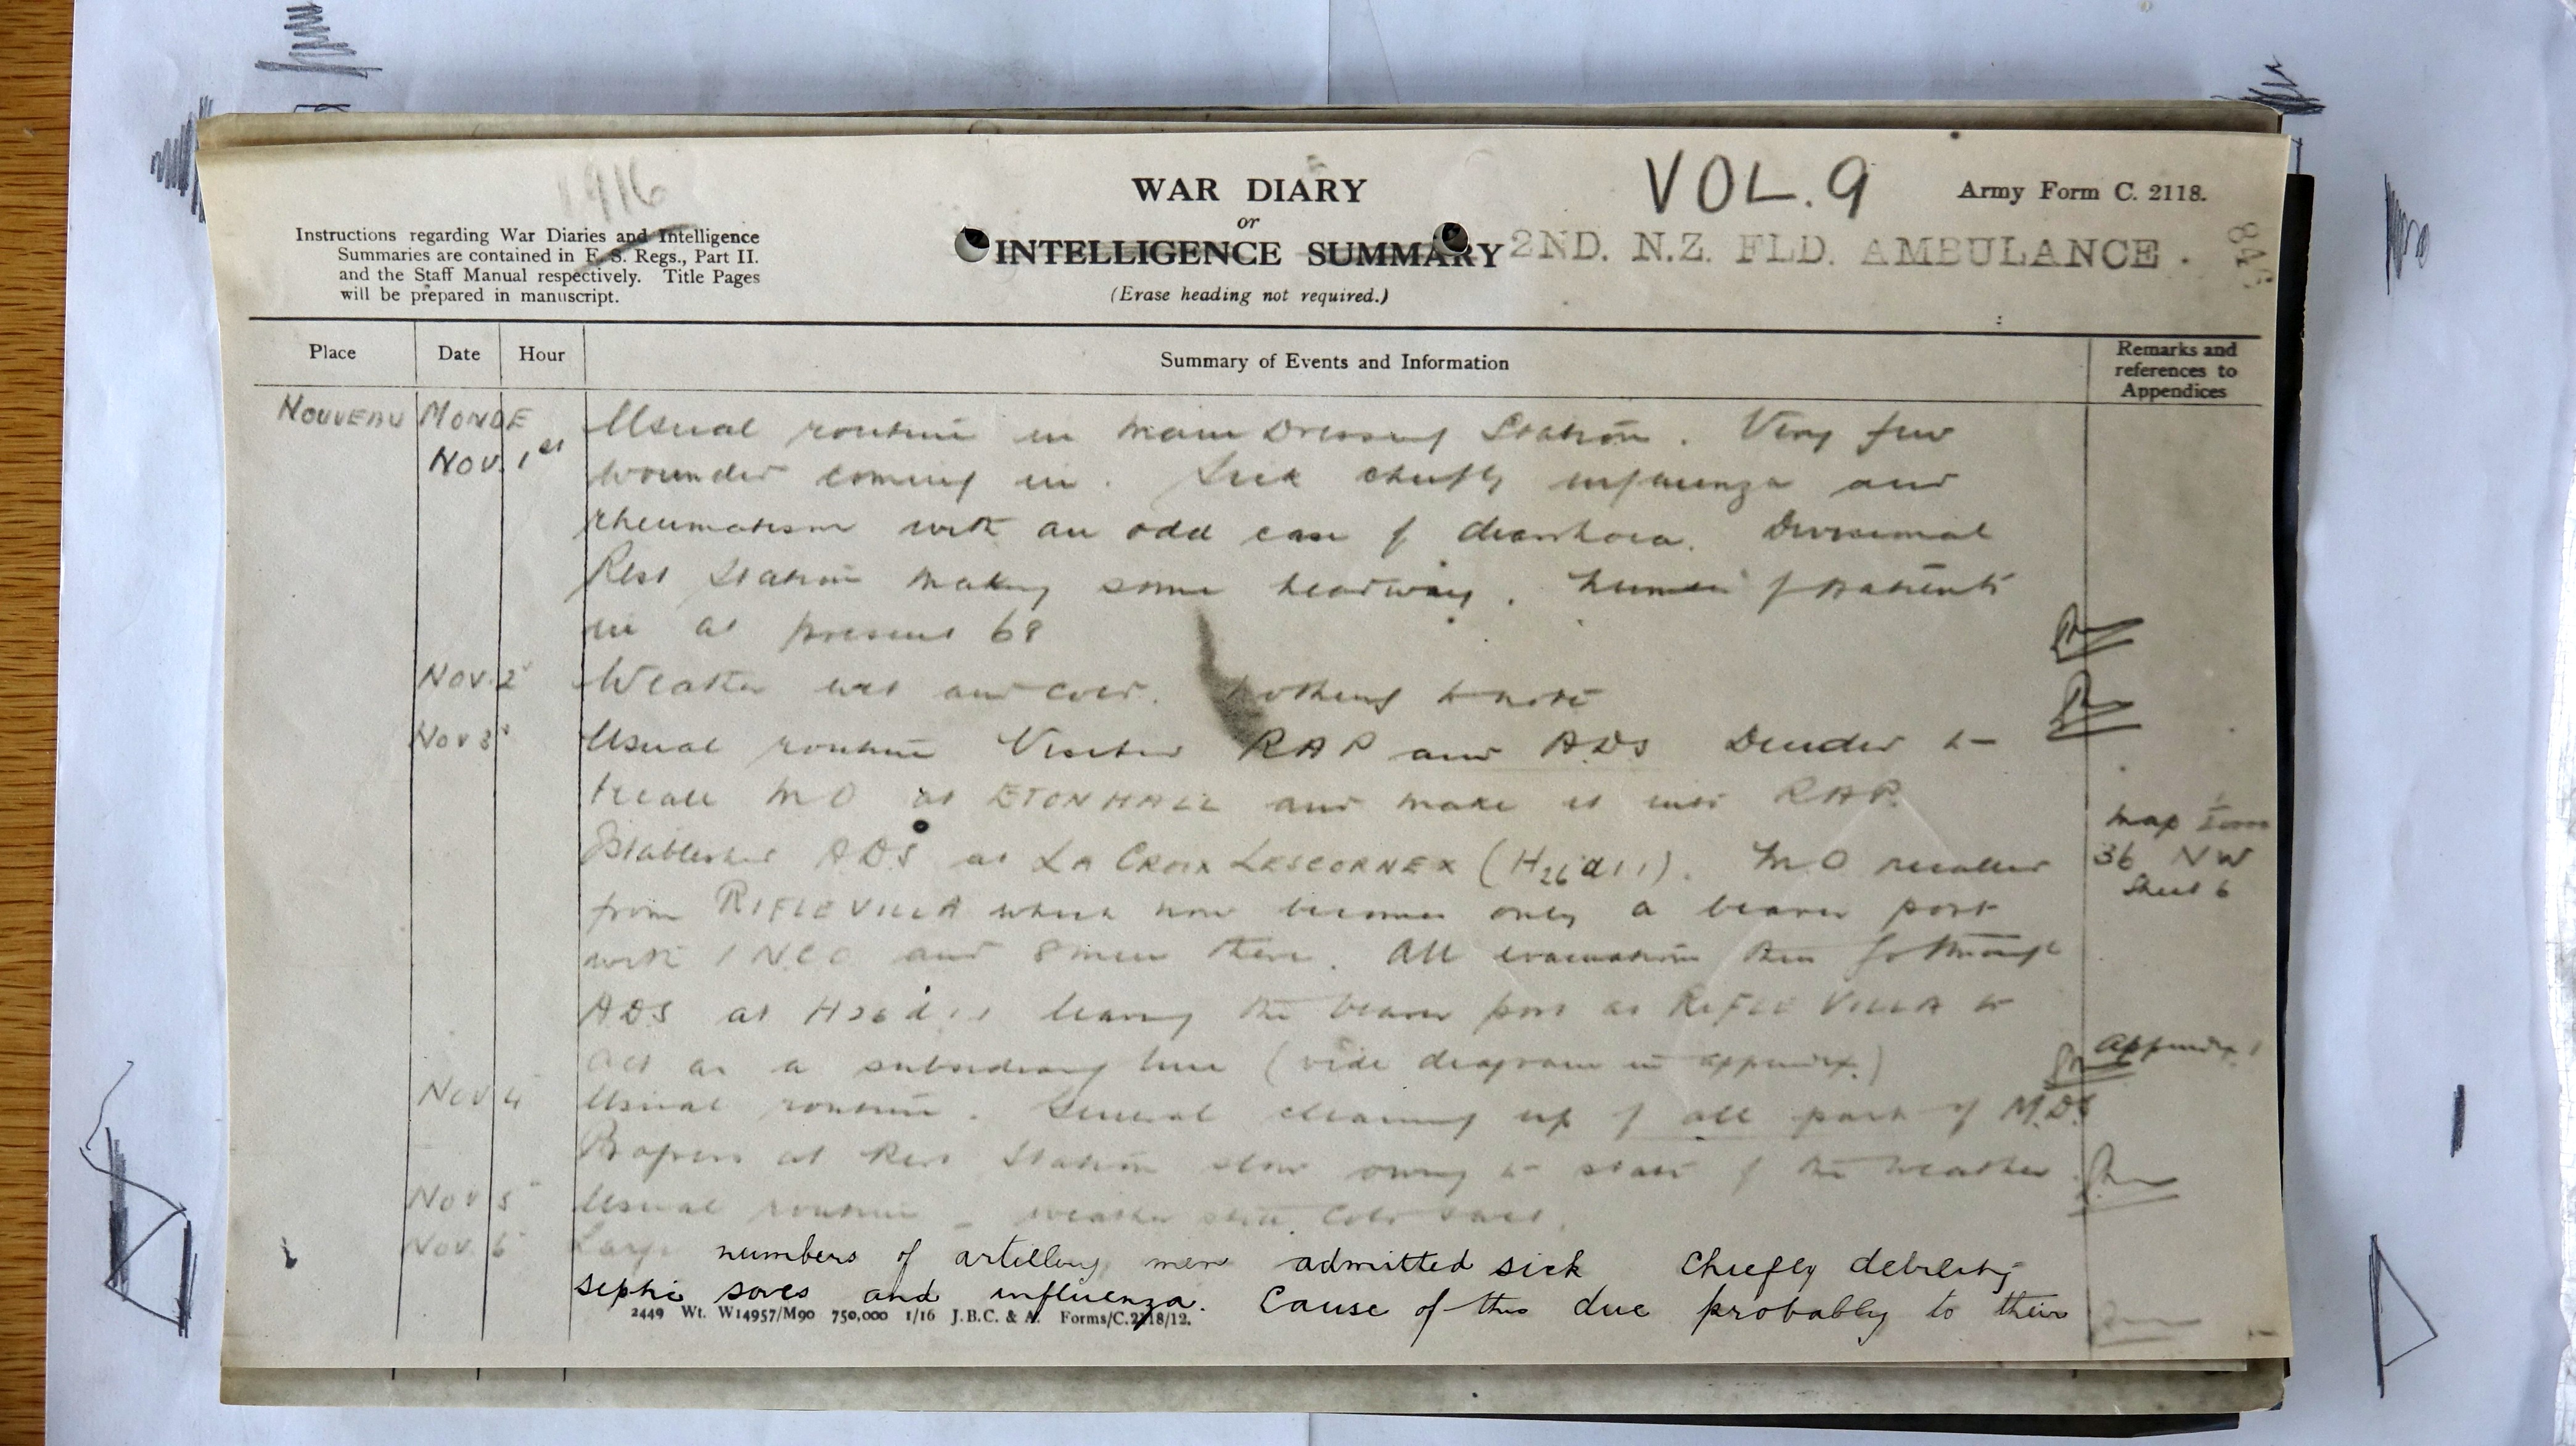 1916
WAR DIARY
or
INTELLIGENCE SUMMARY
(Erase heading not required.)
VOL. 9
Army Form C. 2118.
2ND. N.Z. FLD. AMBULANCE.
Instructions regarding War Diaries and Intelligence
Summaries are contained in F. S. Regs., Part II.
and the Staff Manual respectively. Title Pages
will be prepared in manuscript.
Place Date Hour Summary of Events and Information Remarks and references to Appendices
NOUVEAU MONDE
Nov. 1st Usual routine in Main Dressing Station. Very few
wounded coming in. Sick chiefly influenza and
rheumatism with an odd case of diarrhoea. Divisional
Rest Station making some headway. Number of patients
in at present 68
Nov. 2 Weather wet and cold. Nothing to note
Nov 3 Usual routine Visited RAP and ADS Decided to
recall MO at ETON HALL and make it into RAP.
Established ADS at LA CROIX LESCORNEX (H26 d 1 1). MO recalled
from RIFLE VILLA which now becomes only a bearer post
with 1 NCO and 8 men there. All evacuations then go through
ADS at H26 d 1 1 leaving the bearer post at RIFLE VILLA to
act as a subsidiary line (vide diagram in appendix.)
Map
36 NW
Sheet 6
Appendix 1
Nov 4 Usual routine. General cleaning up of all part of M.D.S
Progress at Rest Station slow owing to state of the weather
Nov 5 Usual routine - weather still cold
Nov. 6 Large numbers of artillery men admitted sick chiefly debility
septic sores and influenza. Cause of this due probably to their
2449 Wt. W14957/M90 750,000 1/16 J.B.C. & A. Forms/C.2118/12.